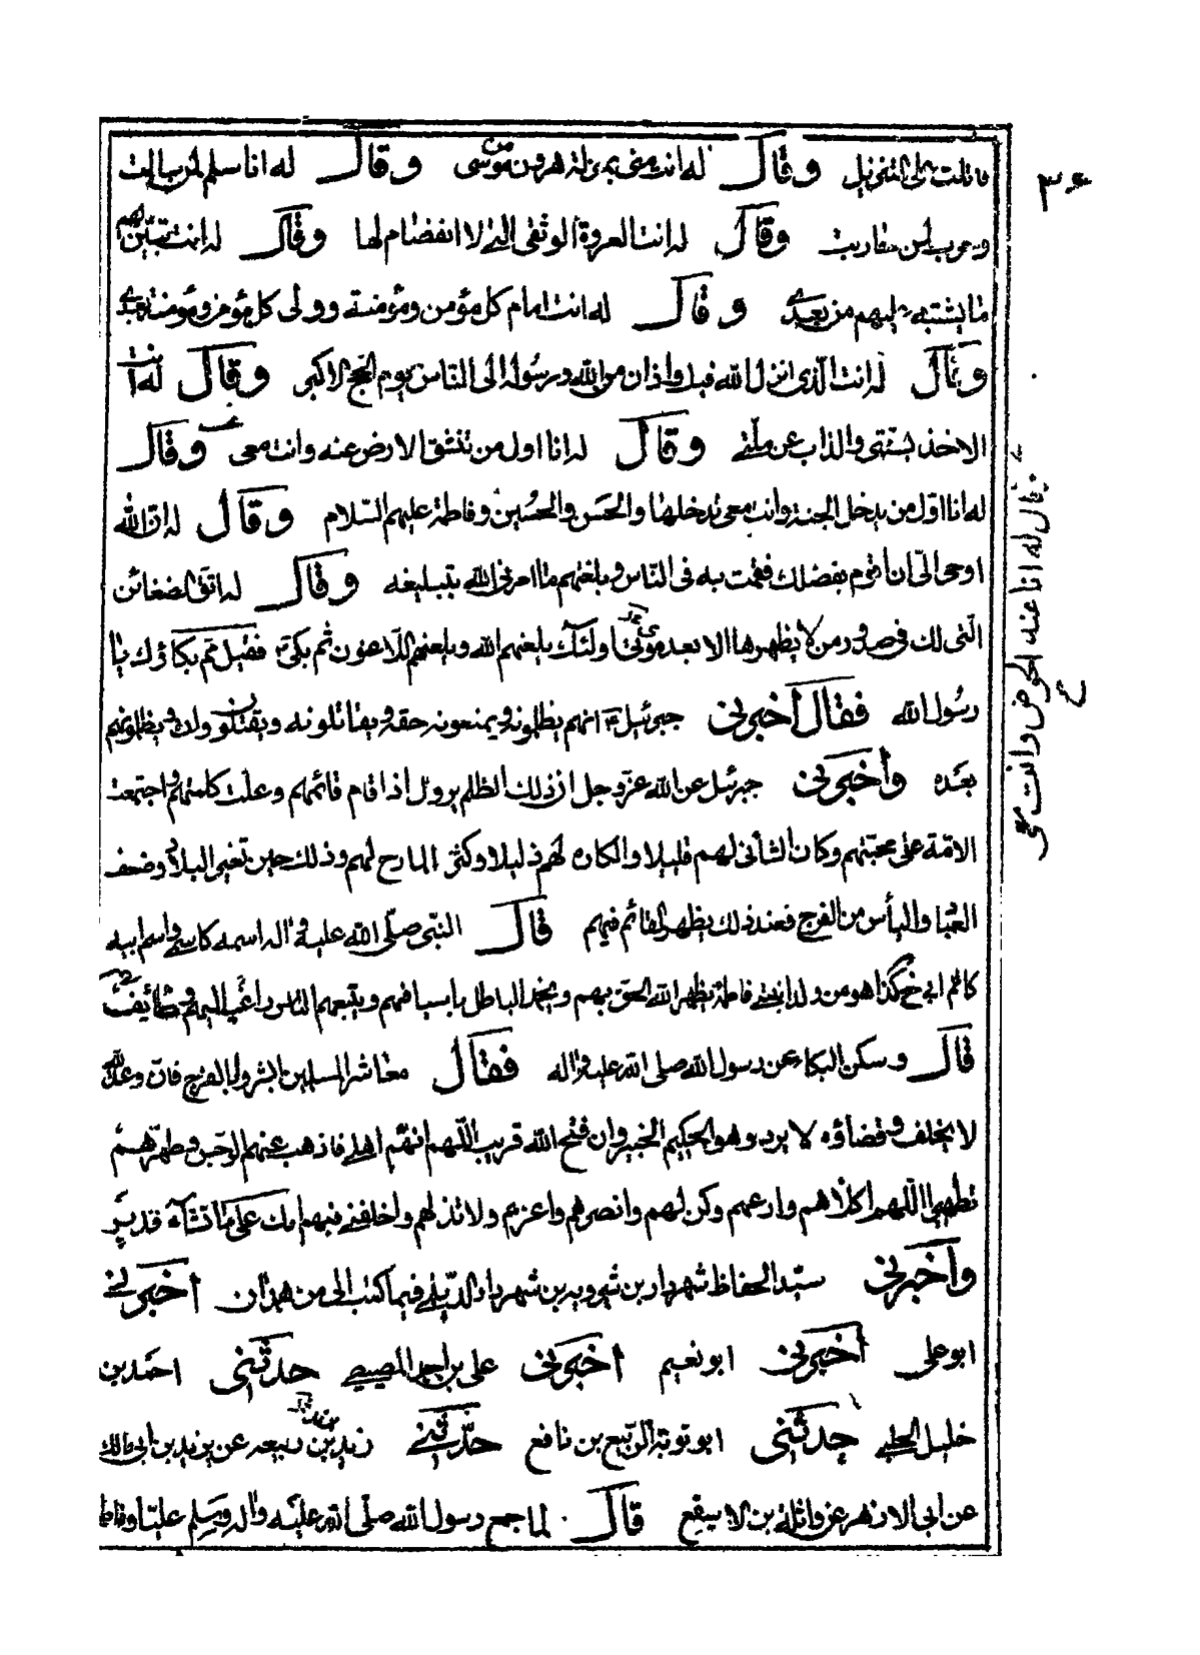 قاتلت على التنزيل وقال له انت منى بمنزلة هرون من موسى وقال له انا سلم لمن سالمت
وحرب لمن حاربت وقال له انت العروة الوثقى التى لا انفصام لها وقال له انت تبيّن لهم
ما يشتبه عليهم من بعدى وقال له انت امام كل مؤمن ومؤمنة وولى كل مؤمن ومؤمنة بعدى
وقال له انت الذى انزل الله فيك واذان من الله ورسوله الى الناس يوم الحج الاكبر وقال له انت
الاخذ بسنتى والذاب عن ملّتى وقال له انا اول من تنشق الارض عنه وانت معى وقال
له انا اوّل من يدخل الجنة وانت معى تدخلها والحسن والحسين وفاطمة عليهم السّلام وقال له ان الله
اوحى الىّ ان اقوم بفضلك فقمت به فى الناس وبلغتهم ما امرنى الله بتبليغه وقال له اتق الضغائن
الّتى لك فى صدور من لا يظهرها الا بعد موتى اولئك يلعنهم الله ويلعنهم اللاعنون ثم بكى فقيل مم بكاؤك يا
رسول الله فقال اخبرنى جبرئيل انهم يظلمونه ويمنعونه حقه ويقاتلونه ويقتلون ولده ويظلمونهم
بعده واخبرنى جبرئيل عن الله عزوجل ان ذلك الظلم يزول اذا قام قائمهم وعلت كلمتهم واجتمعت
الامّة على محبتهم وكان الشانى لهم قليلا والكاره لهم ذليلا وكثر المادح لهم وذلك حين تغير البلاد وضعف
العباد واليأس من الفرج فعند ذلك يظهر القائم فيهم قال النبى صلّى الله عليه واله اسمه كاسمى واسم ابيه
كاسم ابى هو من ولد ابنتى فاطمة يظهر الله الحق بهم ويخمد الباطل باسيافهم ويتبعهم الناس راغب اليهم وخائف
قال وسكن البكاء عن رسول الله صلى الله عليه واله فقال معاشر المسلمين ابشروا بالفرج فان وعد الله
لا يخلف وقضاؤه لا يرد وهو الحكيم الخبير وان فتح الله قريب اللّهم انهم اهلى فاذهب عنهم الرجس وطهرهم
تطهيرا اللّهم اكلأهم وارعهم وكن لهم وانصرهم واعزهم ولا تذلهم واخلفنى فيهم انك على ما تشاء قدير
واخبرنى سيّد الحفاظ شهردار بن شيرويه بن شهردار الديلمى فيما كتب الى من همدان اخبرنى
ابو على اخبرنى ابو نعيم اخبرنى على بن احمد المصيصى حدثنى احمد بن
خليل الحلبى حدثنى ابو توبة الربيع بن نافع حدّثنى يزيد بن ربيعه عن يزيد بن ابى مالك
عن ابى الازهر عن واثلة بن الاسقع قال لما جمع رسول الله صلّى الله عليه واله وسلم عليّا وفاطمة
٣٤
وقال له انا عند الحوض وانت معى